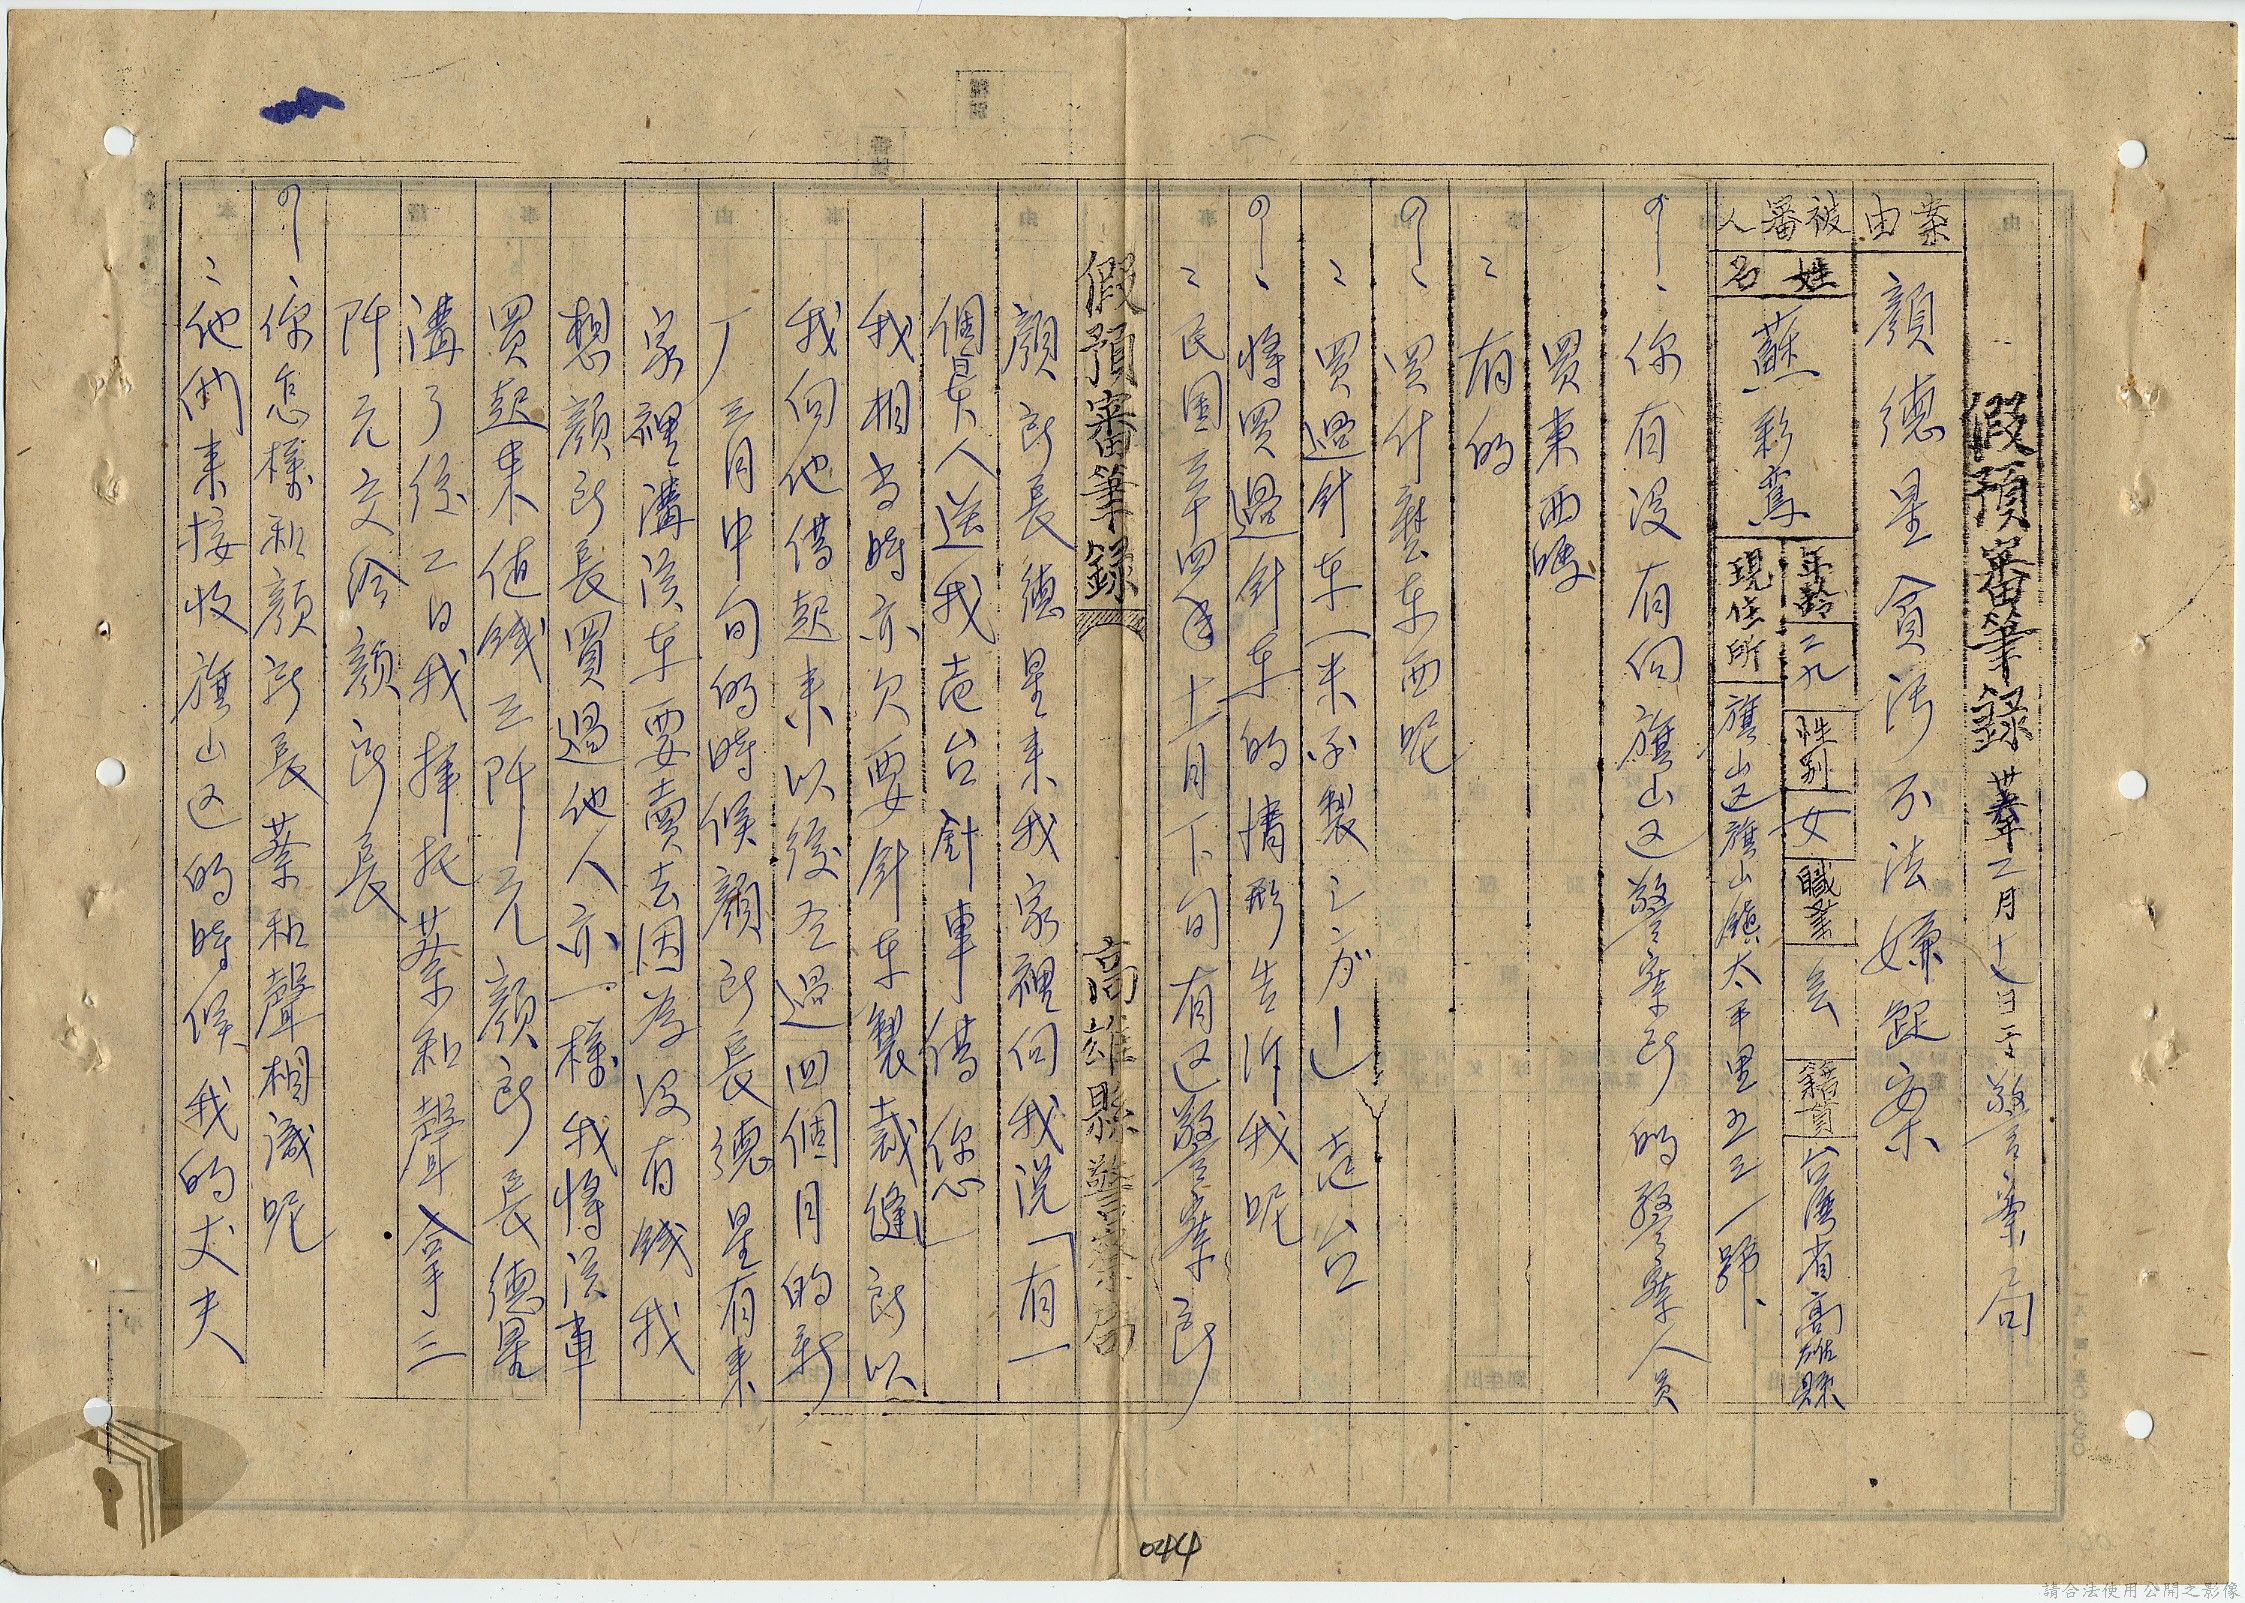 假預審筆錄 卅六年二月十七日于警察局
案由 顏德星貪污不法嫌疑案
被審人 姓名 蘇彩鴛 年齡 二九 性別 女 職業 籍貫 台灣省高雄縣
現住所 旗山区旗山鎮太平里五三一號
你有没有向旗山区警察所的警察人員
買東西嗎
有的
買什麽东西呢
買過針车(未不製之廃) 壱台
將買過針车的情形告诉我呢
民国三十四年十一月下旬有区警察所
假預審筆錄 高雄縣警察局
顏所長德星来我家裡向我説「有一
個日本人送我壱台針車借你」
我相当時亦欠要針车製裁縫所以
我向他借起来以後至過四個月的新
厂三月中旬的時候顏所長德星有来
家裡講该车要賣去因為没有錢我
想顏所長買過他人亦一樣我將该車
買起来值錢三阡元顏所長德星
講了後二日我拝托蔡和聲拿三
阡元交給顏所長
你怎樣和顏所長蔡和聲相識呢
他們来接收旗山区的時候我的丈夫
044
請合法使用公開之影像